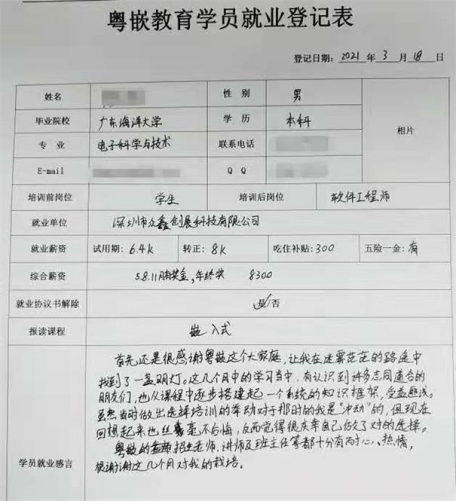 粤嵌教育学员就业登记表
登记日期: 2021 年 3 月 18 日
姓名 性 别 男
毕业院校 广东海洋大学 学 历 本科 相片
专 业 电子科学与技术 联系电话
E-mail Q Q
培训前岗位 学生 培训后岗位 软件工程师
就业单位 深圳市众鑫创展科技有限公司
就业薪资 试用期: 6.4k 转正: 8k 吃住补贴: 300 五险一金: 有
综合薪资 5.8.11月有奖金,年终奖 8300
就业协议书解除 是/否
报读课程 嵌入式
学员就业感言
首先还是很感谢粤嵌这个大家庭,让我在迷雾茫茫的路途中
找到了一盏明灯。这几个月中的学习当中,有认识到许多志同道合的
朋友们,也从课程中逐步搭建起一个系统的知识框架,受益匪浅。
虽然当时做出选择培训的举动对于那时的我是“冲动”的,但现在
回想起来也丝毫不后悔,反而觉得很庆幸自己做了对的选择。
粤嵌的招生老师、讲师及班主任等都十分有耐心、热情,
很谢谢这几个月对我的栽培。